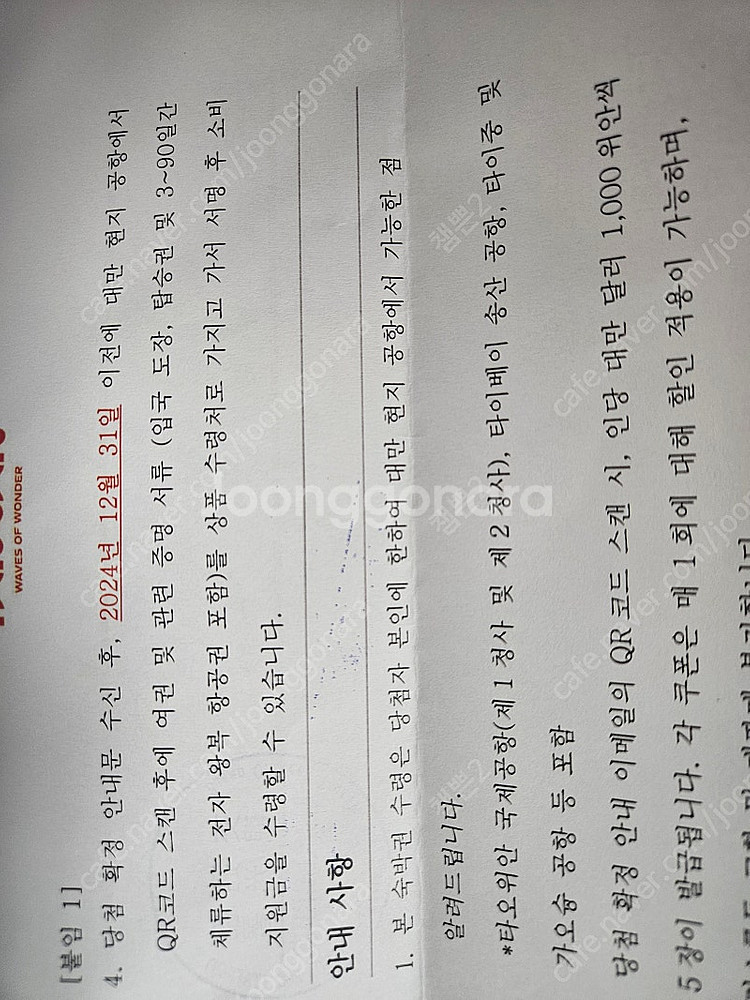 WAVES OF WONDER
[붙임 1]
4. 당첨 확정 안내문 수신 후, 2024년 12월 31일 이전에 대만 현지 공항에서
QR코드 스캔 후에 여권 및 관련 증명 서류 (입국 도장, 탑승권 및 3~90일간
체류하는 전자 왕복 항공권 포함)를 상품 수령처로 가지고 가서 서명 후 소비
지원금을 수령할 수 있습니다.
안내 사항
1. 본 숙박권 수령은 당첨자 본인에 한하여 대만 현지 공항에서 가능한 점
알려드립니다.
*타오위안 국제공항(제 1 청사 및 제 2 청사), 타이베이 송산 공항, 타이중 및
가오슝 공항 등 포함
당첨 확정 안내 이메일의 QR 코드 스캔 시, 인당 대만 달러 1,000 위안씩
5 장이 발급됩니다. 각 쿠폰은 매 1 회에 대해 할인 적용이 가능하며,
joonggonara
cafe.naver.com/joonggonara
챔쁜2